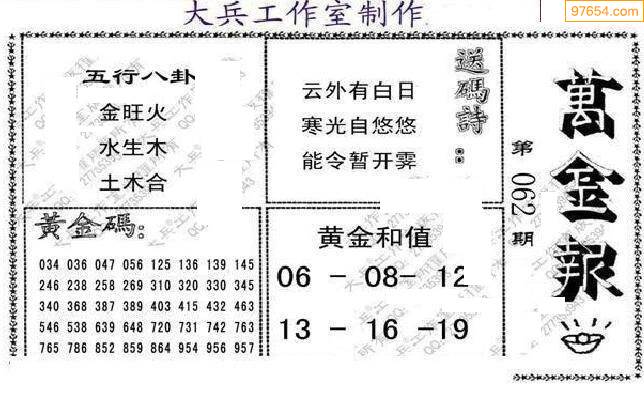 大兵工作室制作
97654.com
五行八卦
金旺火
水生木
土木合
送碼詩：
云外有白日
寒光自悠悠
能令暂开霁
萬金報
第062期
黃金碼：
034 036 047 056 125 136 139 145
246 238 258 269 310 320 330 345
340 368 387 389 403 415 432 463
546 538 639 648 720 731 742 763
765 786 852 859 864 954 956 957
黄金和值
06 - 08- 12
13 - 16 -19